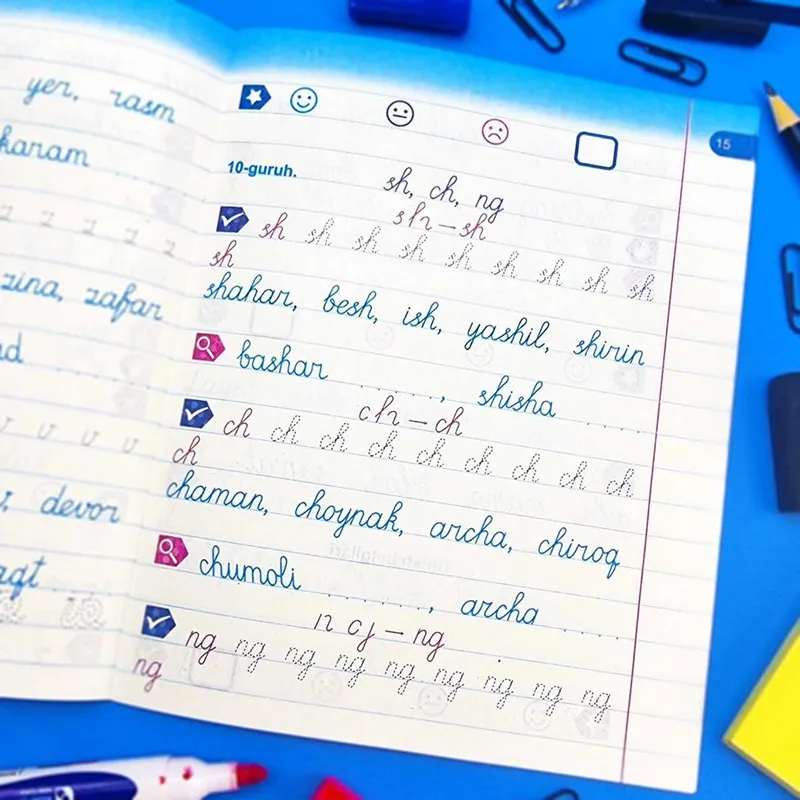 yer, rasm
karam
z z z z z
zina, zafar
v v v v
devor
15
10-guruh.
sh, ch, ng
sh – sh
sh sh sh sh sh sh sh sh sh
sh
shahar, besh, ish, yashil, shirin
bashar ......, shisha .....
ch – ch
ch ch ch ch ch ch ch ch ch
ch
chaman, choynak, archa, chiroq
chumoli ......., archa .....
n g – ng
ng ng ng ng ng ng ng ng ng
ng